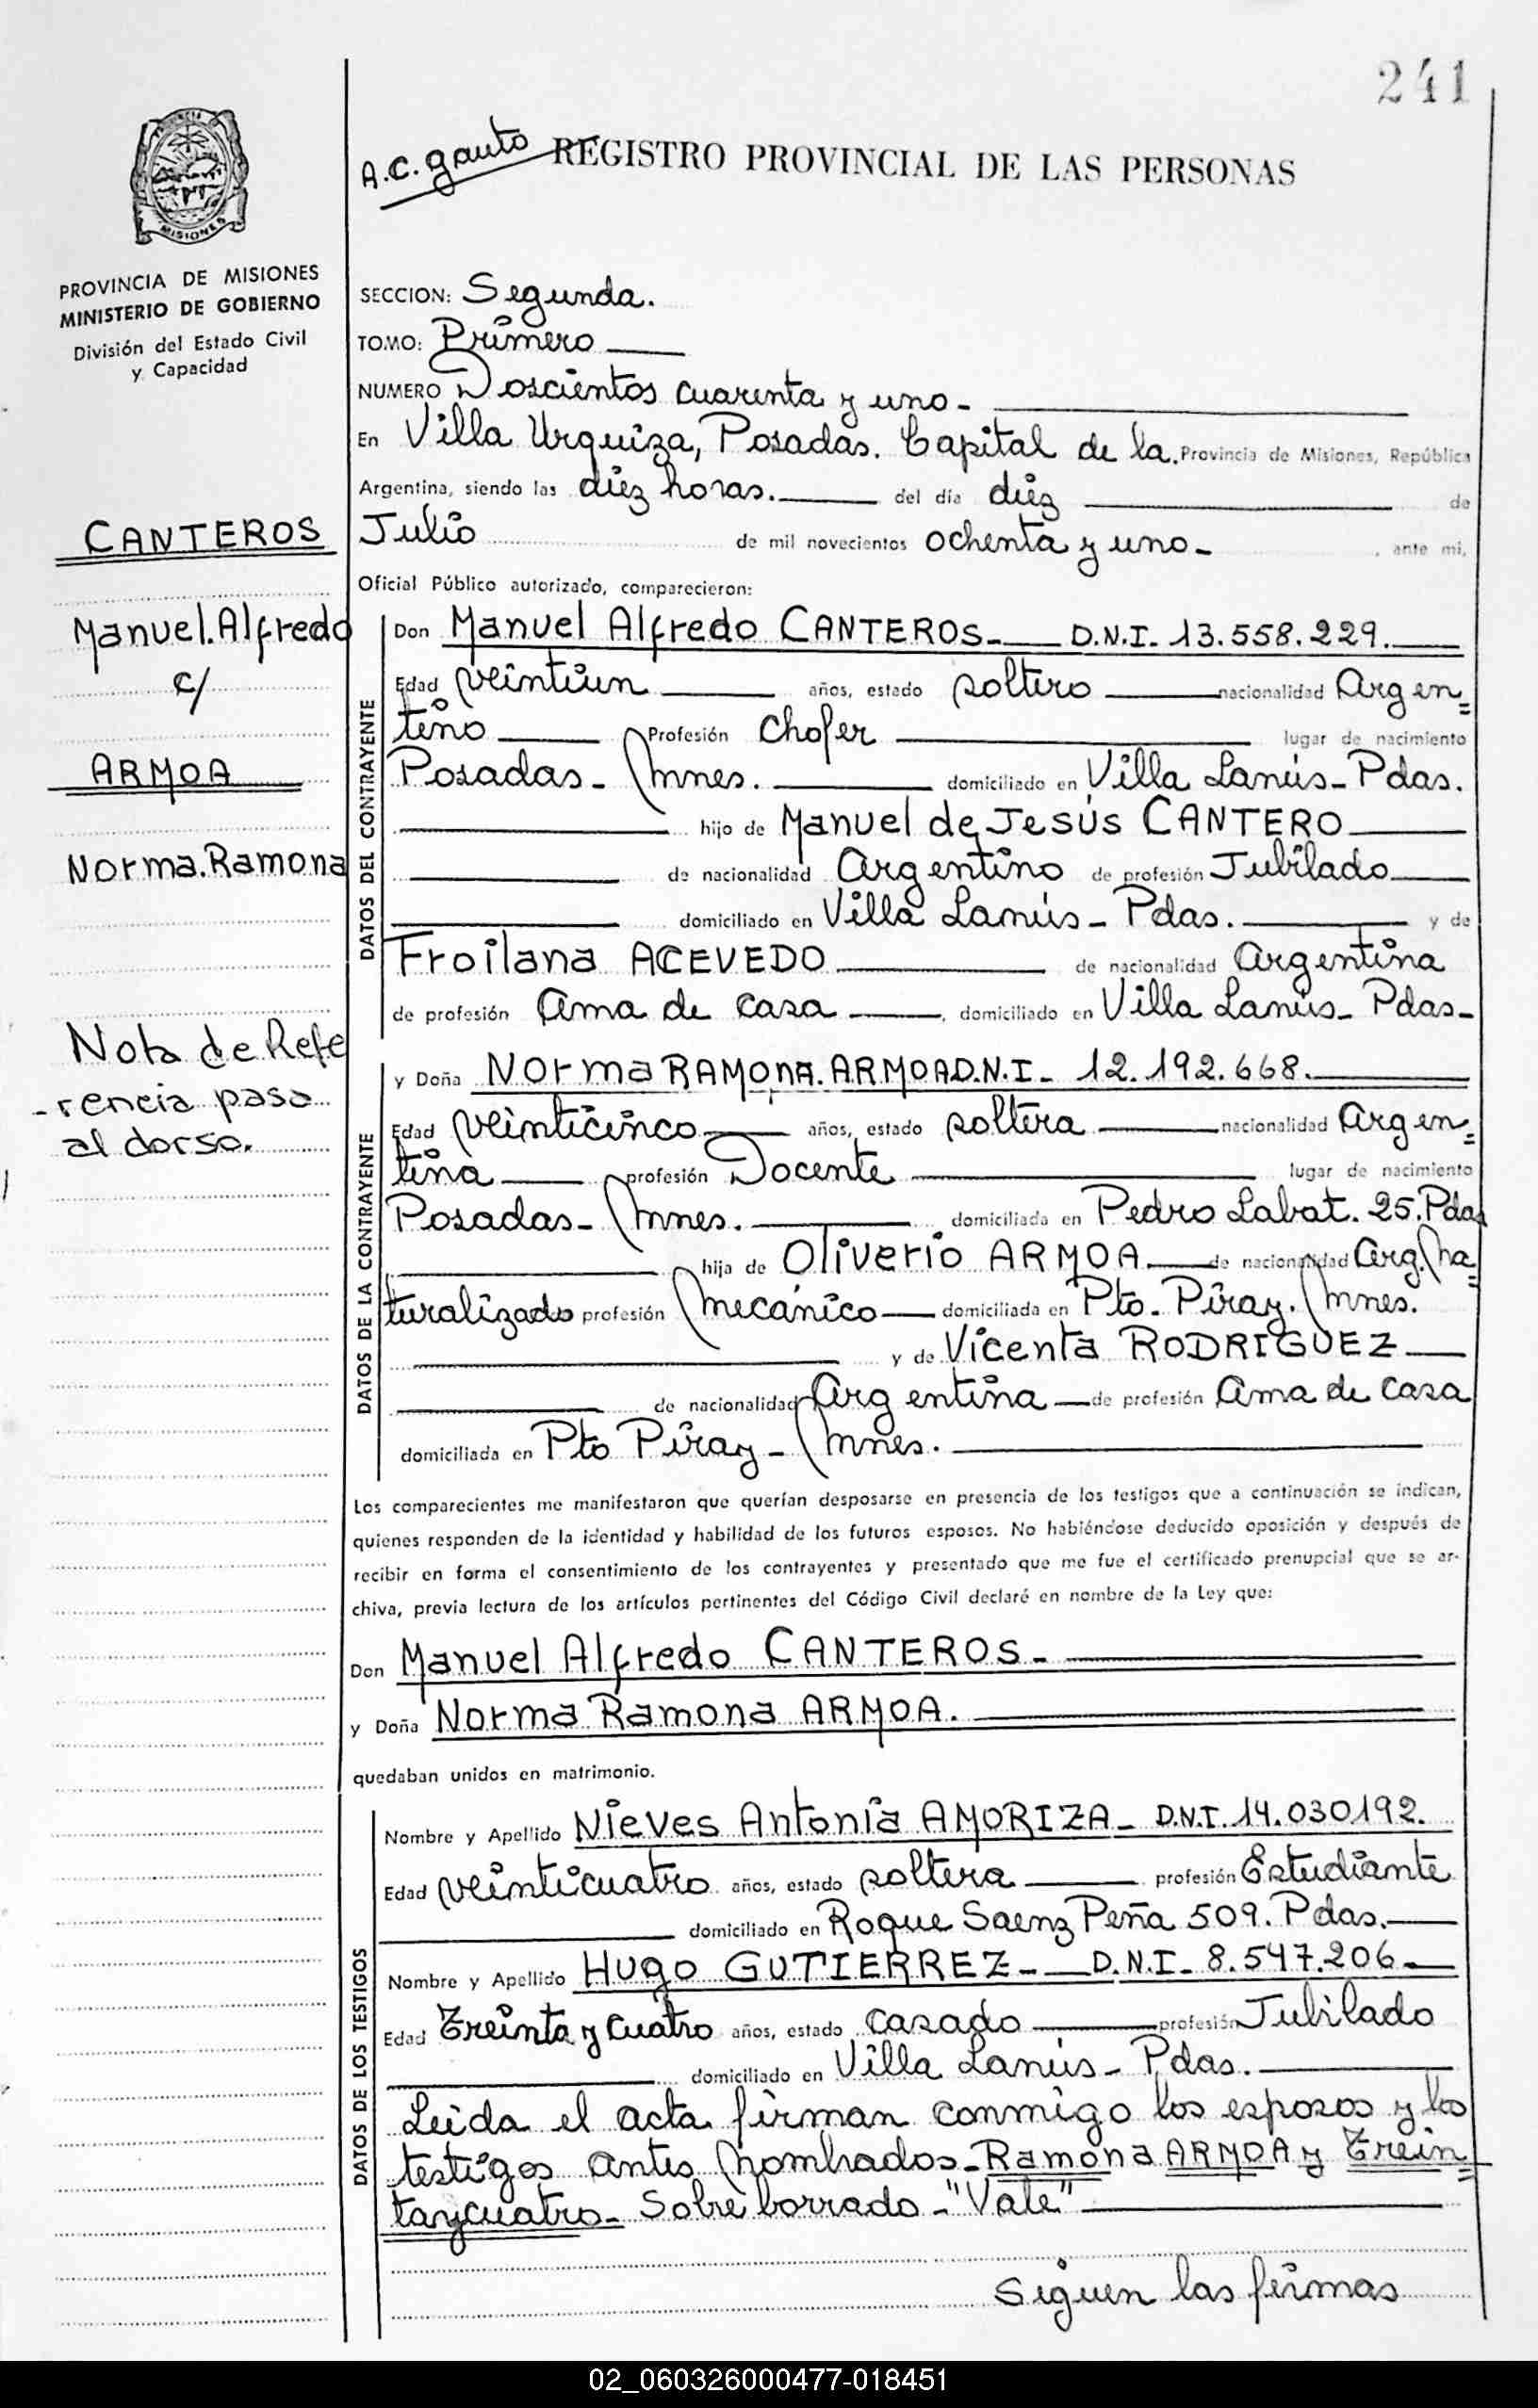 241
A.C. Gauto
REGISTRO PROVINCIAL DE LAS PERSONAS
PROVINCIA DE MISIONES
MINISTERIO DE GOBIERNO
División del Estado Civil
y Capacidad
SECCION: Segunda.
TOMO: Primero
NUMERO Doscientos cuarenta y uno-
En Villa Urquiza, Posadas. Capital de la. Provincia de Misiones, República
Argentina, siendo las diez horas. del día diez de
Julio de mil novecientos ochenta y uno- , ante mi,
Oficial Público autorizado, comparecieron:
CANTEROS
Manuel.Alfredo
c/
ARMOA
Norma.Ramona
Nota de Refe
-rencia pasa
al dorso.
DATOS DEL CONTRAYENTE
Don Manuel Alfredo CANTEROS- D.N.I- 13.558.229.
Edad veintiun años, estado soltero nacionalidad Argen=
tino Profesión Chofer lugar de nacimiento
Posadas- Mnes. domiciliado en Villa Lanús- Pdas.
hijo de Manuel de Jesús CANTERO
de nacionalidad Argentino de profesión Jubilado
domiciliado en Villa Lanús- Pdas. y de
Froilana ACEVEDO de nacionalidad Argentina
de profesión Ama de casa , domiciliado en Villa Lanús- Pdas-
DATOS DE LA CONTRAYENTE
y Doña Norma RAMONA. ARMOA D.N.I- 12.192.668.
Edad veinticinco años, estado soltera nacionalidad Argen=
tina profesión Docente lugar de nacimiento
Posadas- Mnes. domiciliada en Pedro Labat. 25. Pdas
hija de Oliverio ARMOA de nacionalidad Arg. na=
turalizado profesión Mecánico domiciliada en Pto. Piray. Mnes.
y de Vicenta RODRIGUEZ
de nacionalidad Argentina de profesión Ama de casa
domiciliada en Pto Piray- Mnes.
Los comparecientes me manifestaron que querían desposarse en presencia de los testigos que a continuación se indican,
quienes responden de la identidad y habilidad de los futuros esposos. No habiéndose deducido oposición y después de
recibir en forma el consentimiento de los contrayentes y presentado que me fue el certificado prenupcial que se ar-
chiva, previa lectura de los artículos pertinentes del Código Civil declaré en nombre de la Ley que:
Don Manuel Alfredo CANTEROS-
y Doña Norma Ramona ARMOA.
quedaban unidos en matrimonio.
DATOS DE LOS TESTIGOS
Nombre y Apellido Nieves Antonia AMORIZA- D.N.I. 14.030192.
Edad veinticuatro años, estado soltera profesión Estudiante
domiciliado en Roque Saenz Peña 509. Pdas.
Nombre y Apellido Hugo GUTIERREZ- D.N.I- 8.547.206-
Edad Treinta y cuatro años, estado casado profesión Jubilado
domiciliado en Villa Lanús- Pdas.
Leida el acta firman conmigo los esposos y los
testigos antes nombrados- Ramona ARMOA y Trein=
taycuatro- Sobre borrado- "Vale"
Siguen las firmas
02_060326000477-018451